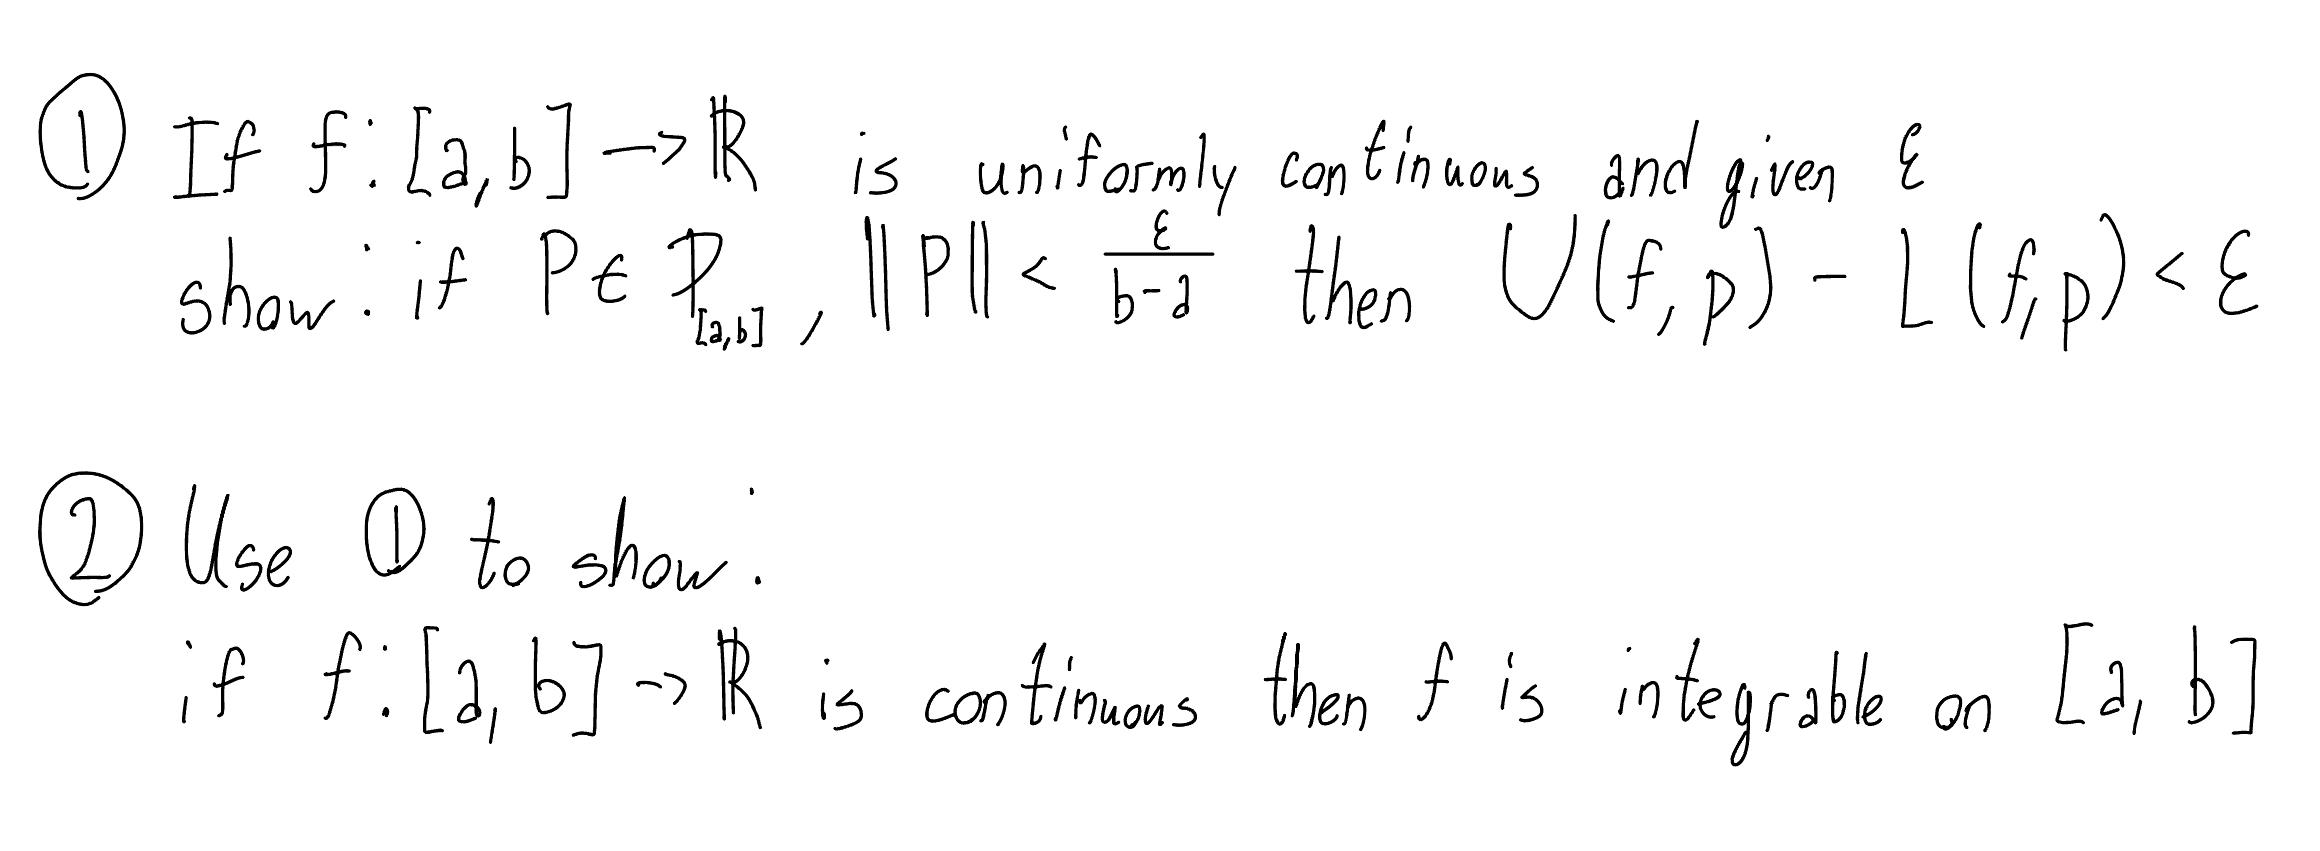 ① If f: [a, b] → ℝ is uniformly continuous and given ε
show: if P ∈ P_[a,b], ||P|| < ε/(b-a) then U(f, p) - L(f, p) < ε
② Use ① to show:
if f: [a, b] → ℝ is continuous then f is integrable on [a, b]